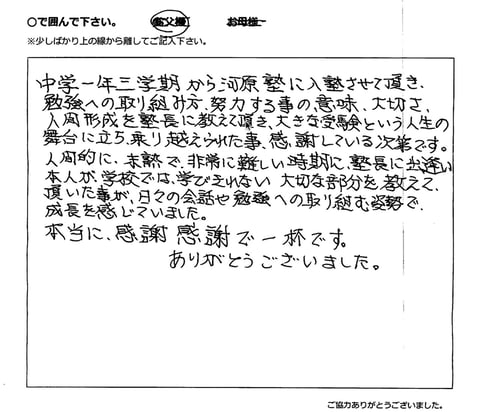 ○で囲んで下さい。 お父様 お母様
※少しばかり上の線から離してご記入下さい。
中学一年三学期から河原塾に入塾させて頂き、
勉強への取り組み方、努力する事の意味、大切さ、
人間形成を塾長に教えて頂き、大きな受験という人生の
舞台に立ち、乗り越えられた事、感謝している次第です。
人間的に、未熟で、非常に難しい時期に、塾長に出逢い
本人が、学校では、学びきれない 大切な部分を、教えて、
頂いた事が、日々の会話や勉強への取り組む姿勢で、
成長を感じていました。
本当に、感謝 感謝で一杯です。
ありがとうございました。
ご協力ありがとうございました。